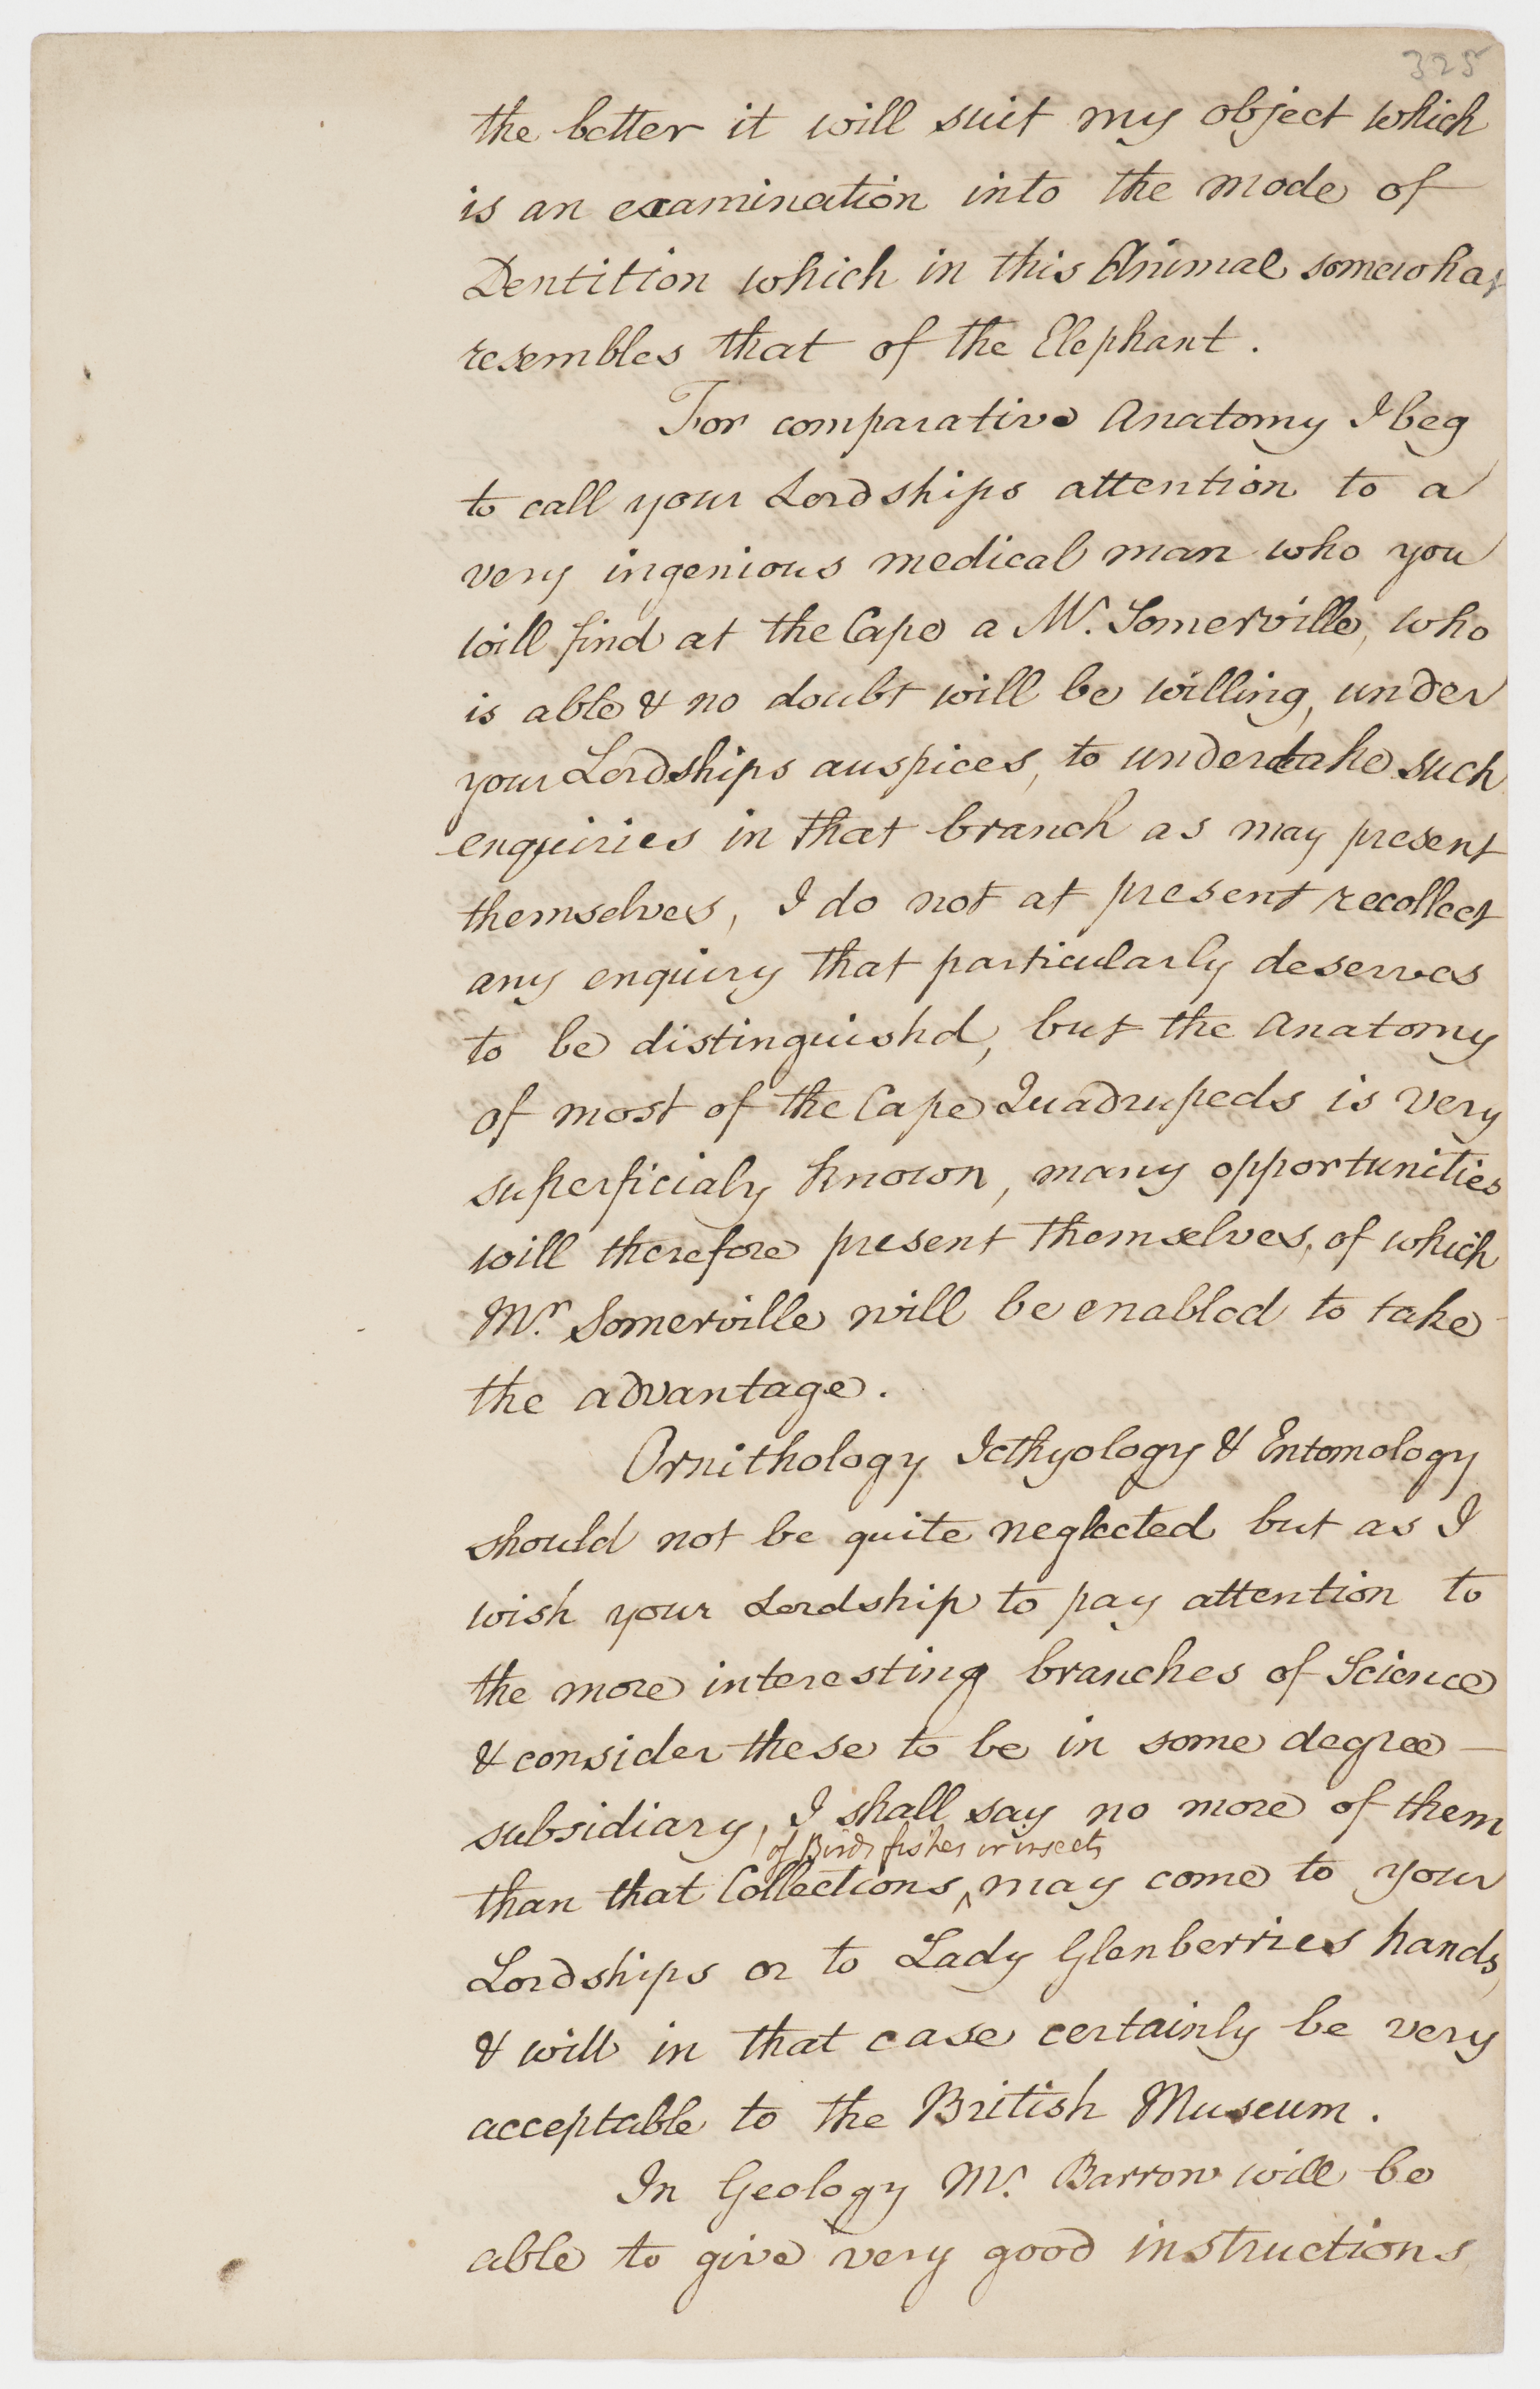 325
the better it will suit my object which
is an examination into the mode of
Dentition which in this Animal somewhat
resembles that of the Elephant.
For comparative Anatomy I beg
to call your Lordships attention to a
very ingenious medical man who you
will find at the Cape a Mr. Somerville, who
is able & no doubt will be willing, under
your Lordships auspices, to undertake such
enquiries in that branch as may present
themselves, I do not at present recollect
any enquiry that particularly deserves
to be distinguishd, but the Anatomy
of most of the Cape Quadrupeds is very
superficialy known, many opportunities
will therefore present themselves, of which
Mr. Somerville will be enabled to take
the advantage.
Ornithology Icthyology & Entomology
should not be quite neglected but as I
wish your Lordship to pay attention to
the more interesting branches of Science
& consider these to be in some degree —
subsidiary, I shall say no more of them
of Birds fishes or insects
than that Collections ^ may come to your
Lordships or to Lady Glenberries hands,
& will in that case certainly be very
acceptable to the British Museum.
In Geology Mr. Barrow will be
able to give very good instructions